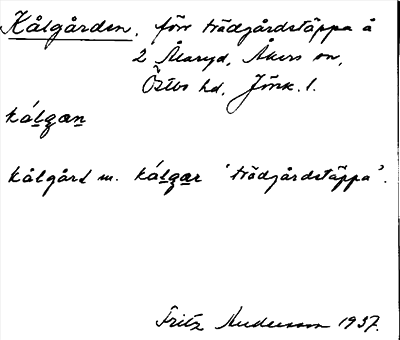 Kålgården, förr trädgårdstäppa å
2 Åkaryd, Åkers sn,
Östbo hd, Jönk. l.
kálgan
kålgård m. kálgar 'trädgårdstäppa'.
Fritz Andersson 1937.